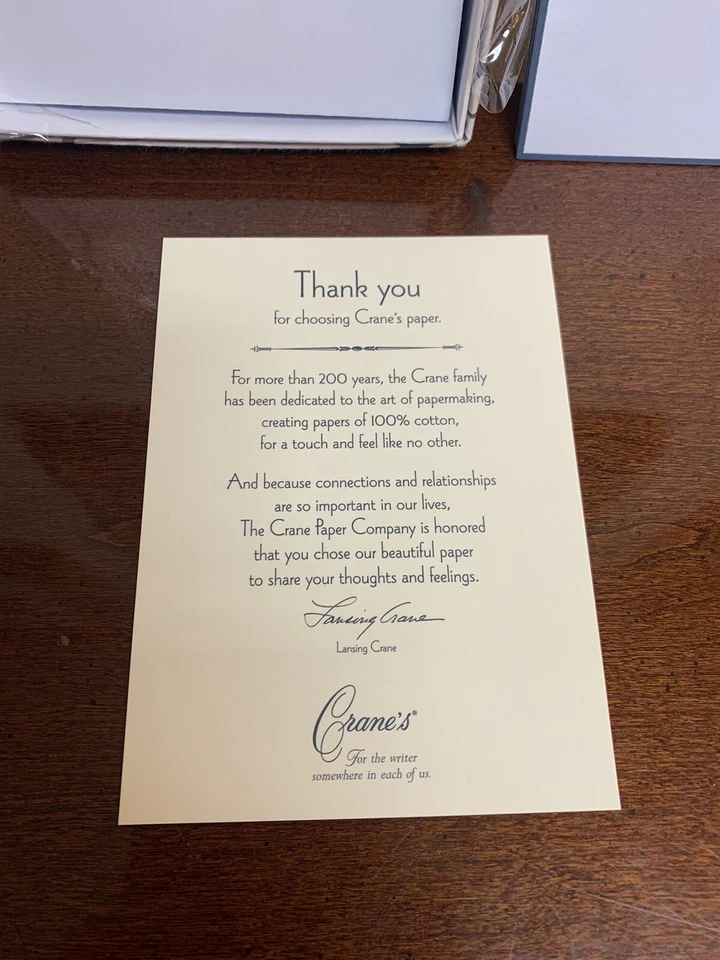 Thank you
for choosing Crane's paper.
For more than 200 years, the Crane family
has been dedicated to the art of papermaking,
creating papers of 100% cotton,
for a touch and feel like no other.
And because connections and relationships
are so important in our lives,
The Crane Paper Company is honored
that you chose our beautiful paper
to share your thoughts and feelings.
Lansing Crane
Lansing Crane
Crane's®
For the writer
somewhere in each of us.